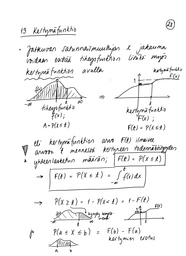 23
13 Kertymäfunktio
- Jatkuvan satunnaismuuttujan x jakauma
voidaan esittää tiheysfunktion lisäksi myös
kertymäfunktion avulla.
kertymäfunktio
F(x)
tiheysfunktio
f(x);
A = P(x ≤ t)
kertymäfunktio
F(x);
F(t) = P(x ≤ t)
eli kertymäfunktion arvo F(t) ilmaisee
arvoon t mennessä kertyneen todennäköisyyden
yhteenlasketun määrän; F(t) = P(x ≤ t)
→ F(t) = P(x ≤ t) = ∫ f(x) dx
→ P(x ≥ t) = 1 - P(x ≤ t) = 1 - F(t)
ja P(a ≤ x ≤ b) = F(b) - F(a)
kertymien erotus